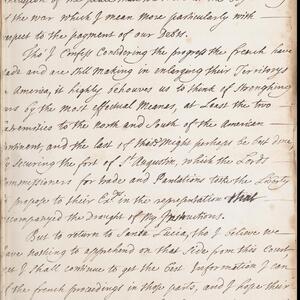 of the war which I mean more particularly with
respect to the payment of our Debts.
Tho' I Confess Considering the progress the french have
made and are still making in enlarging their Territorys
America, it highly behoves us to think of Strengthning
by the most effectual Meanes, at Least the two
extremities to the North and South of the American
Continent, and the last of
by securing the fort of St. Augustin, which the Lords
Commissioners for trade and Plantations take the Liberty
propose to their in the representation that
accompanyed the draught of my Instructions.
But to return to Santa Lucia, tho' I believe we
have nothing to apprehend on that Side from this Court,
yet I shall continue to get the best Information I can
of the french proceedings in those parts, and I hope their